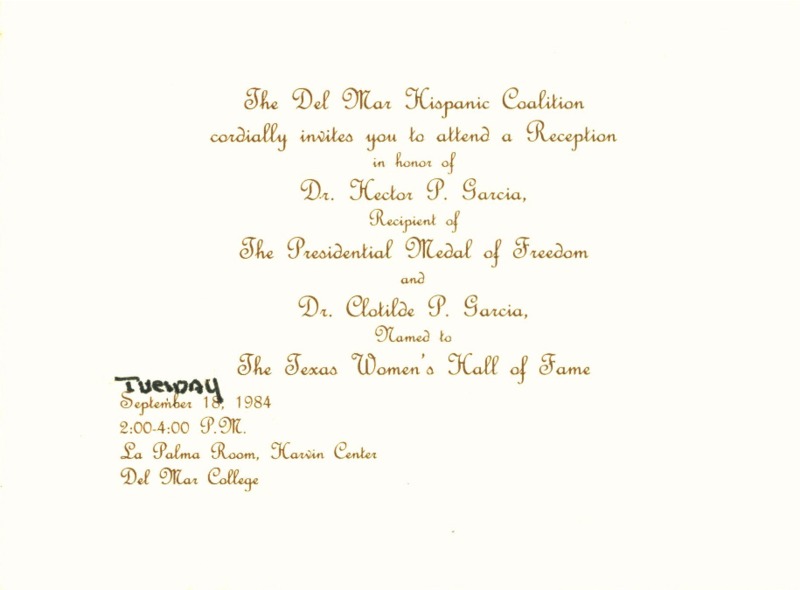 The Del Mar Hispanic Coalition
cordially invites you to attend a Reception
in honor of
Dr. Hector P. Garcia,
Recipient of
The Presidential Medal of Freedom
and
Dr. Clotilde P. Garcia,
Named to
The Texas Women's Hall of Fame
Tuesday
September 18, 1984
2:00-4:00 P.M.
La Palma Room, Harvin Center
Del Mar College